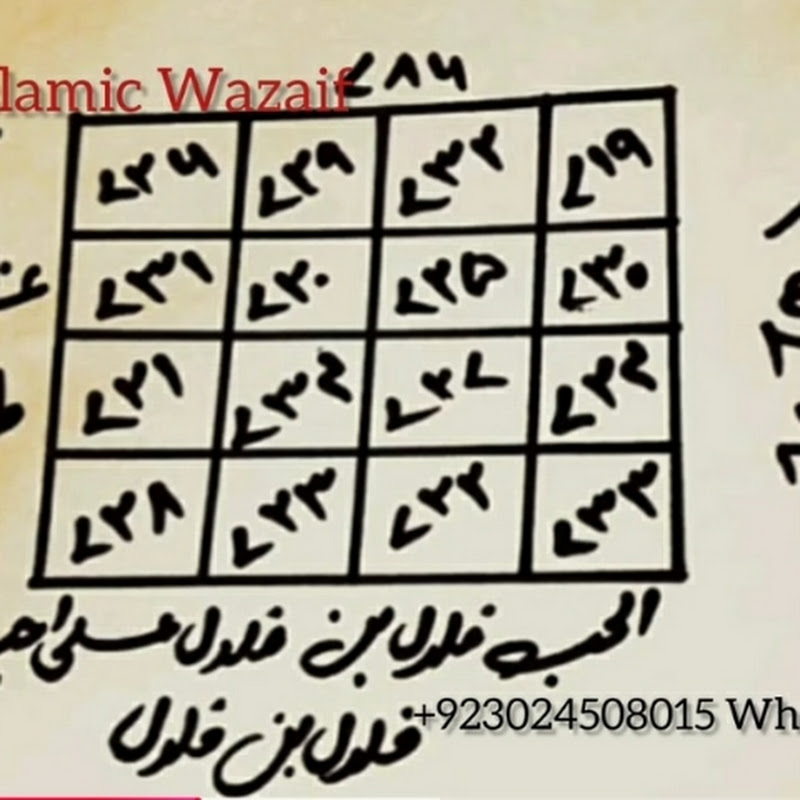 lamic Wazaif
۷۸۶
۷۲۶ ۷۲۹ ۷۳۲ ۷۱۹
۷۳۱ ۷۲۰ ۷۲۵ ۷۳۰
۷۲۱ ۷۳۴ ۷۲۷ ۷۲۴
۷۲۸ ۷۲۳ ۷۲۲ ۷۳۳
الحب فلاں بن فلاں علی
فلاں بن فلاں
+923024508015 Wh